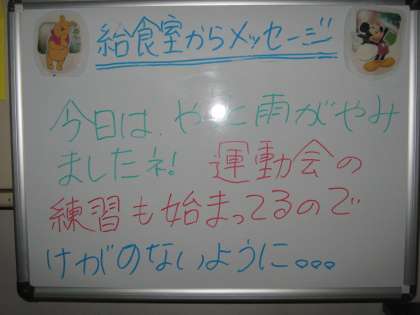 給食室からメッセージ
今日は、やっと雨がやみ
ましたネ! 運動会の
練習も始まってるので
けがのないように。。。